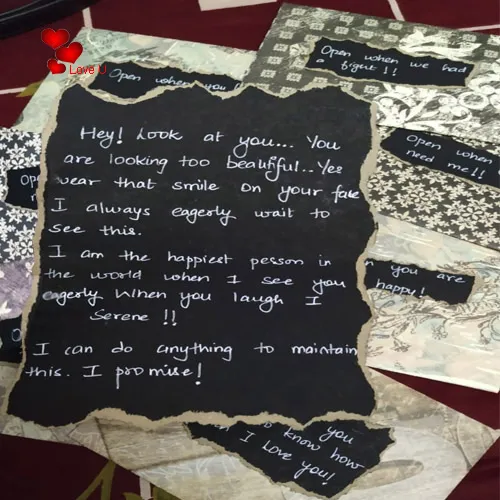 Love U
Open when you
Open when we had
a fight!!
Open when
need me!!
Hey! Look at you... You
are looking too beautiful.. Yes
wear that smile on your face
I always eagerly wait to
see this.
I am the happiest person in
the world when I see you
eagerly When you laugh I
Serene!!
I can do anything to maintain
this. I promise!
you are
happy!
you
to know how
I love you!